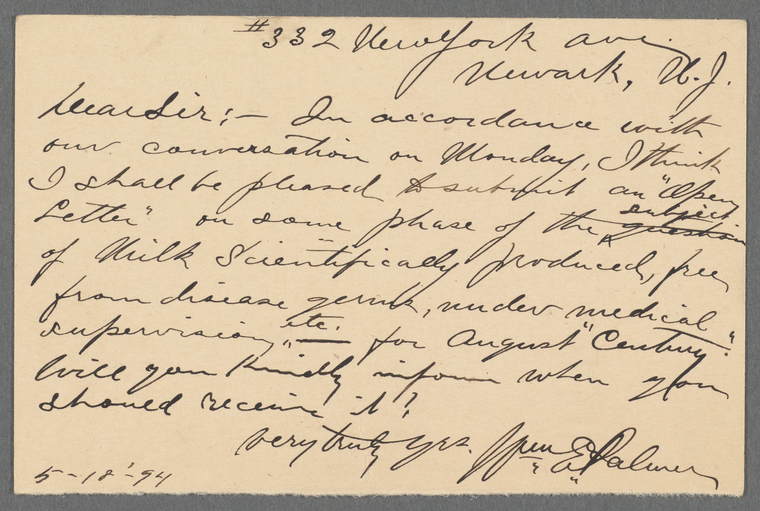 #332 New York ave.
Newark, N.J.
Dear Sir:— In accordance with
our conversation on Monday, I think
I shall be pleased to submit an "Open
Letter" on some phase of the question subject
of Milk Scientifically produced, free
from disease germs, under medical
supervision, etc. — for August "Century".
Will you kindly inform when you
should receive it?
very truly yrs. Wm "E" Palmer
5-18'-94